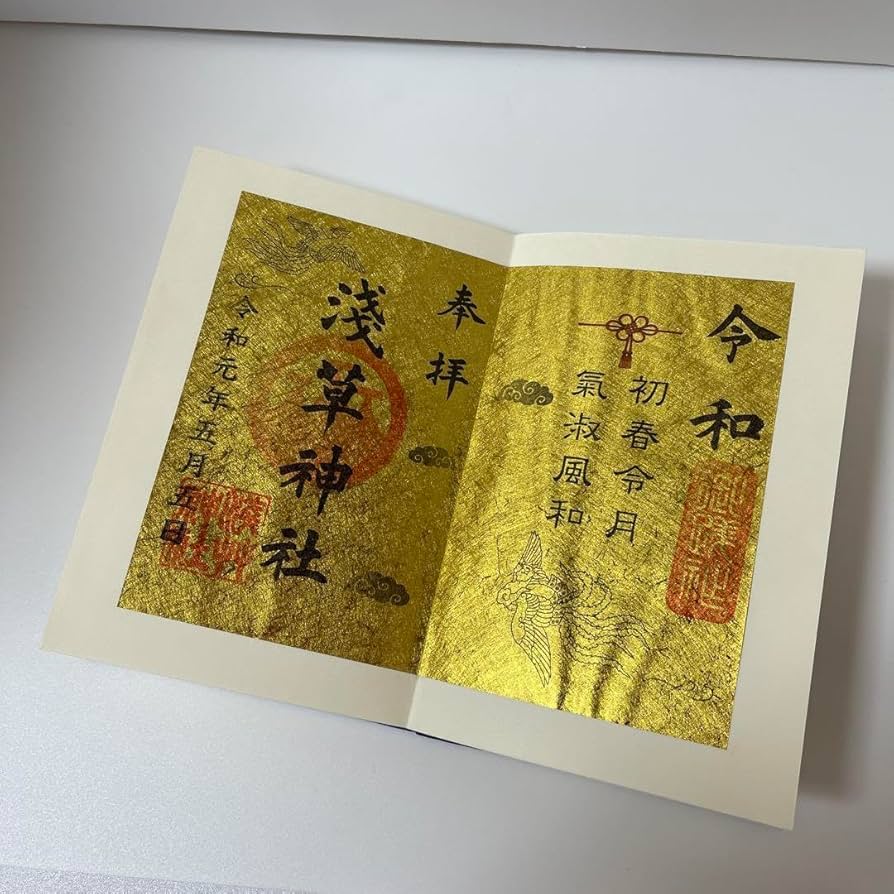 令和
初春令月
氣淑風和
奉拝
淺草神社
令和元年五月五日